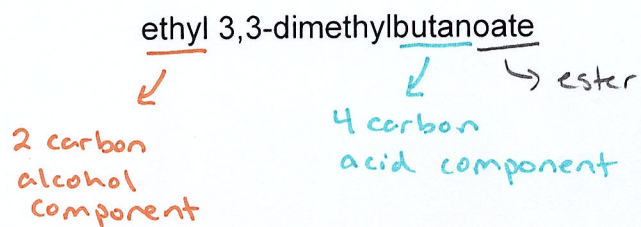 ethyl 3,3-dimethylbutanoate
ester
2 carbon
alcohol
component
4 carbon
acid component